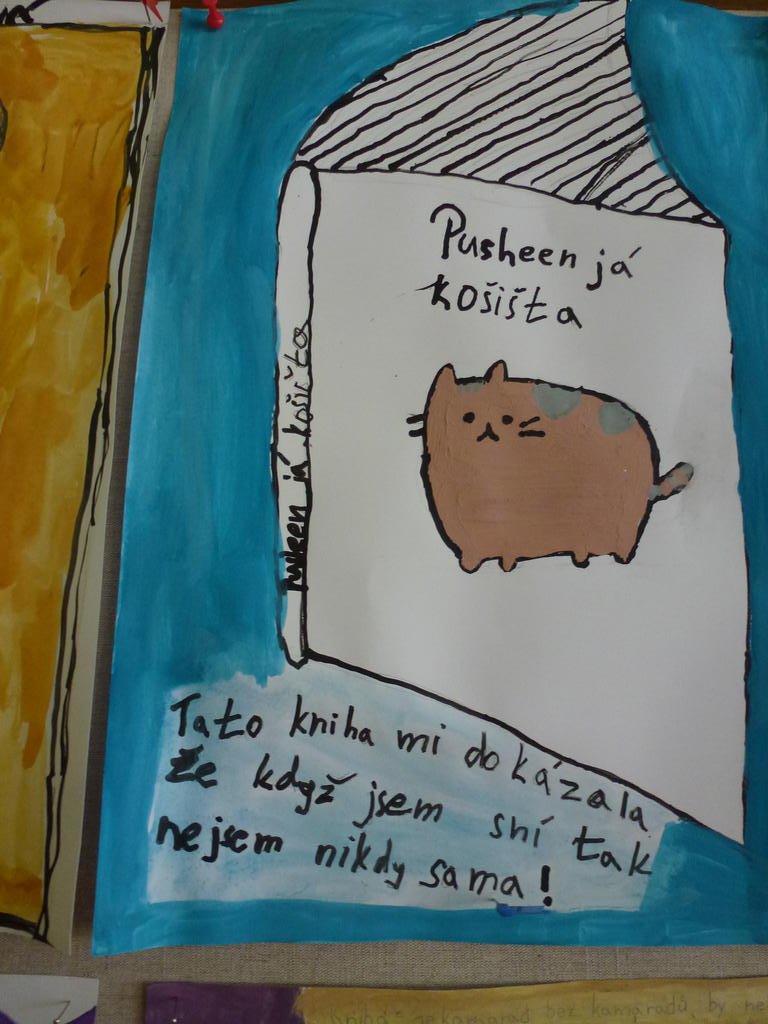 Pusheen já
košišta
Pusheen já košišta
Tato kniha mi dokázala
že když jsem sní tak
nejsem nikdy sama!
Kniha - nekamarad bez kamaradů by ne